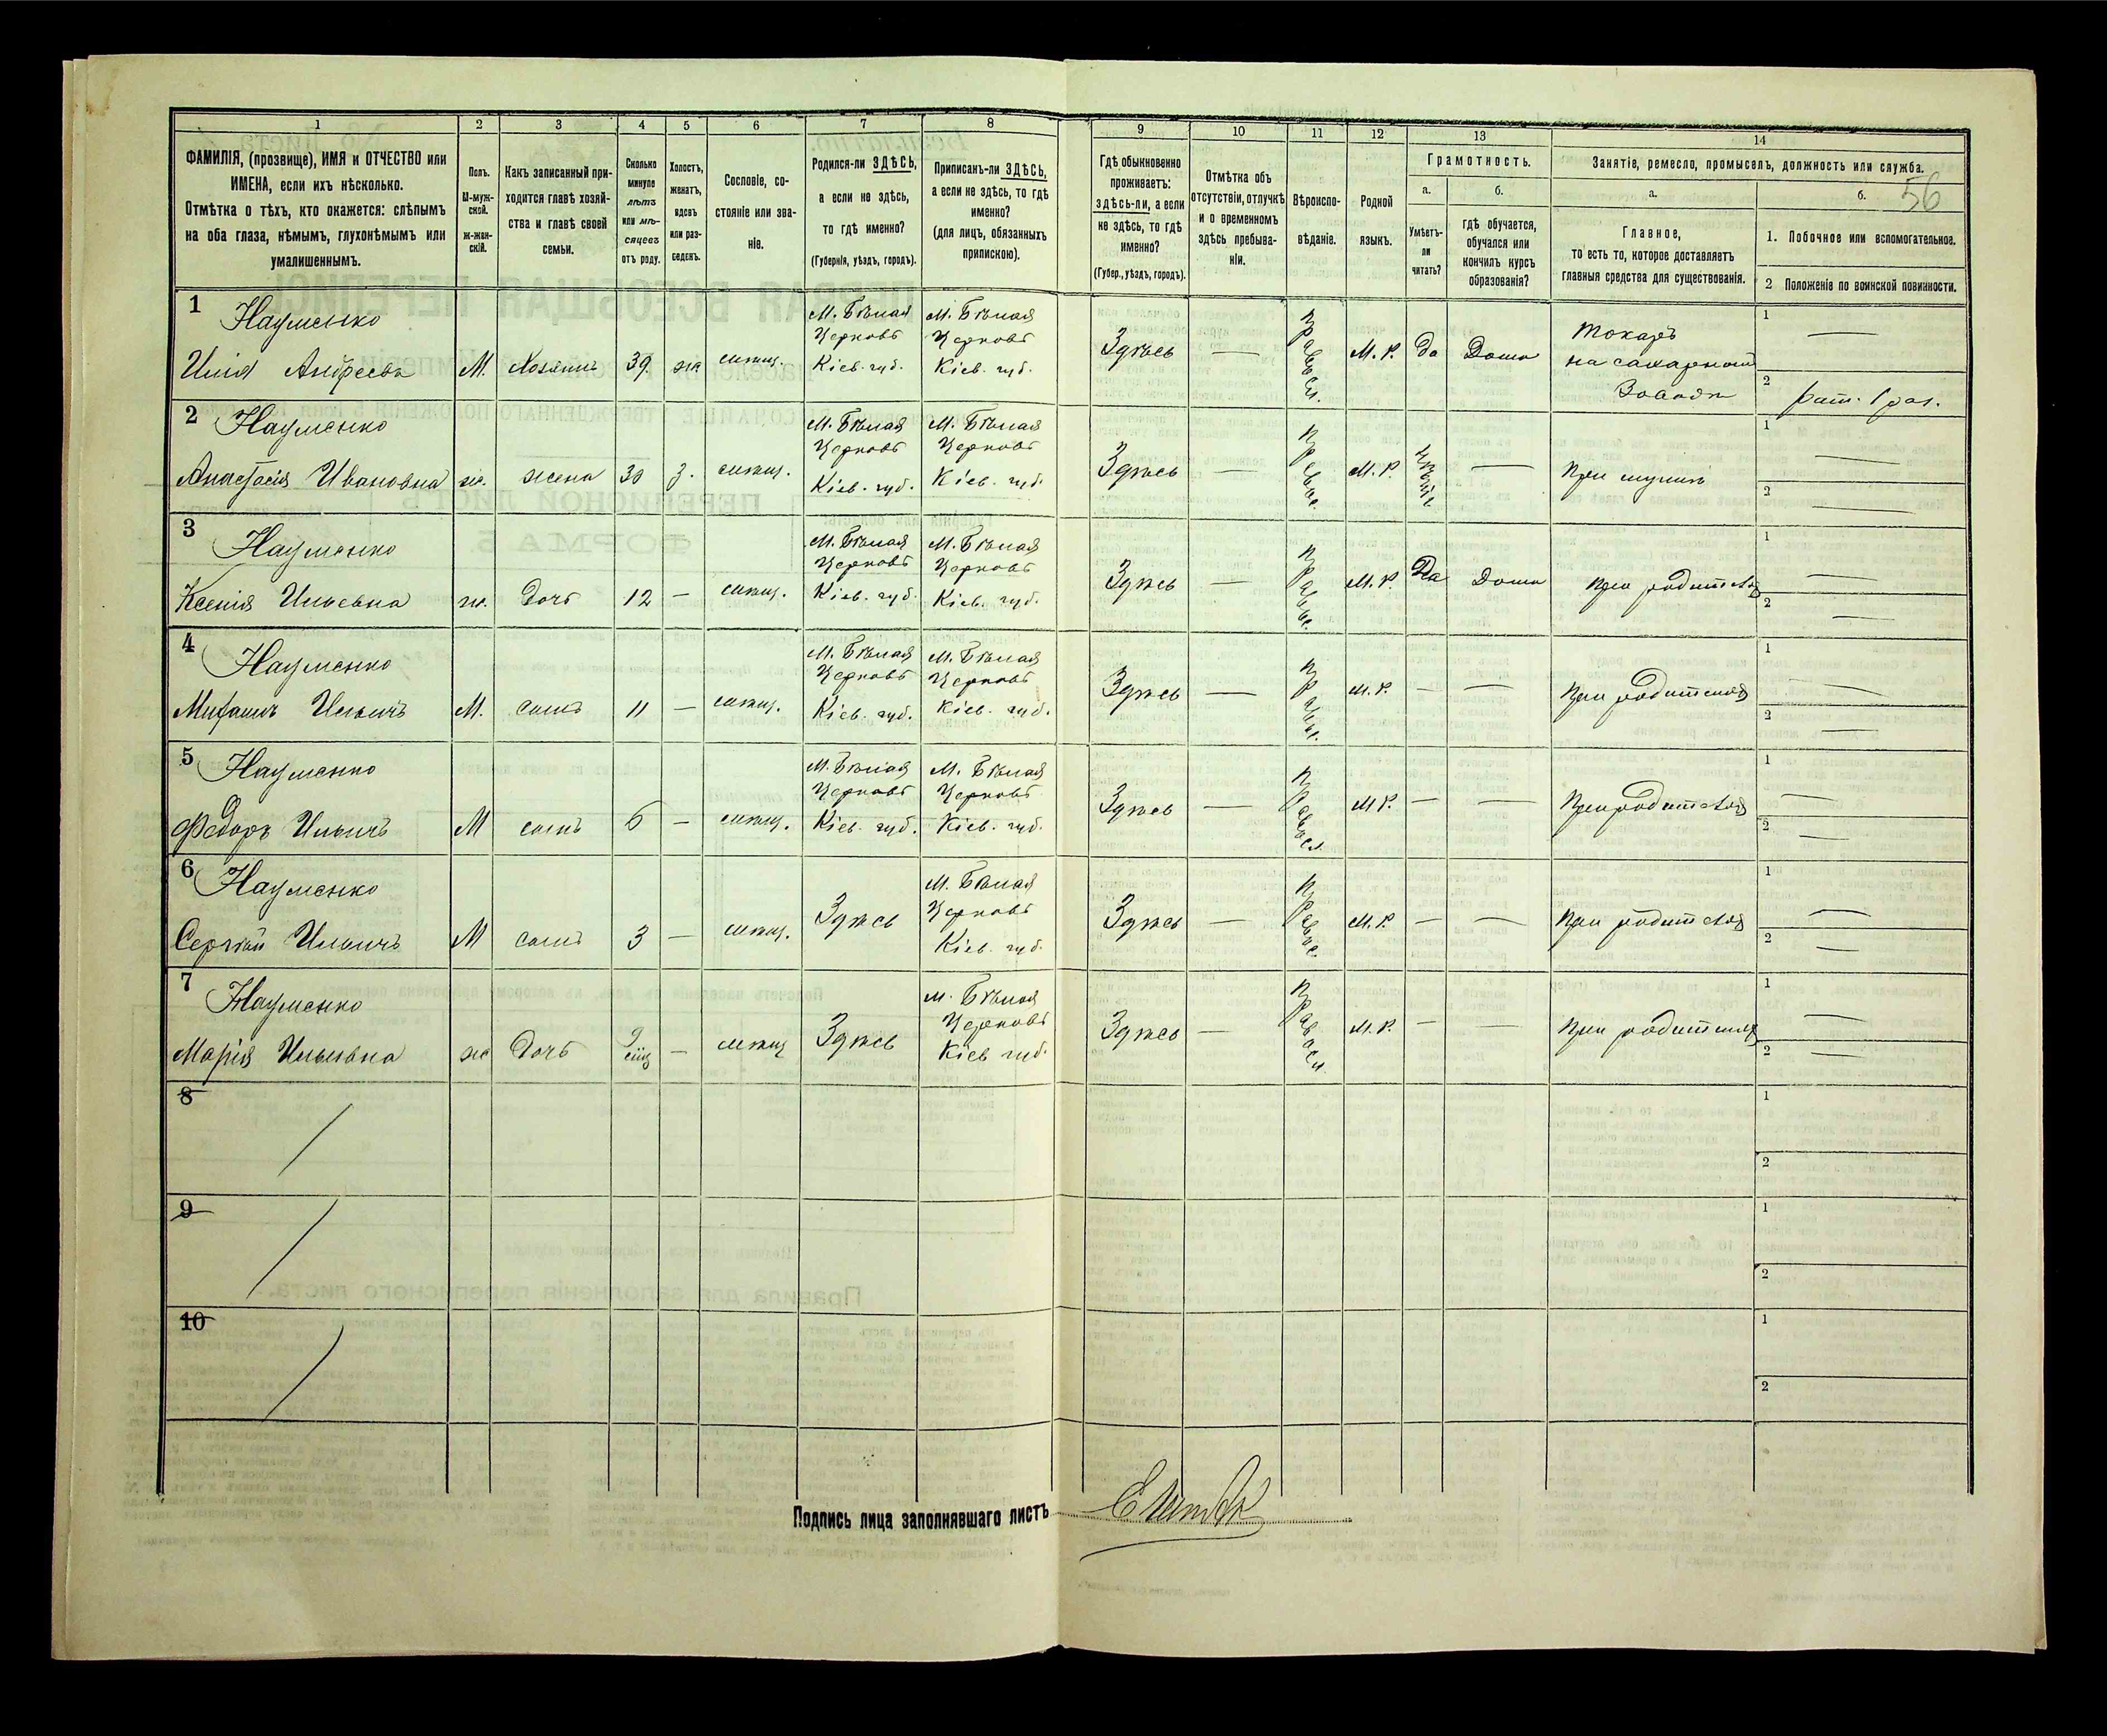 1 2 3 4 5 6 7 8 9 10 11 12 13 14
ФАМИЛІЯ, (прозвище), ИМЯ и ОТЧЕСТВО или
ИМЕНА, если ихъ нѣсколько.
Отмѣтка о тѣхъ, кто окажется: слѣпымъ
на оба глаза, нѣмымъ, глухонѣмымъ или
умалишеннымъ.
Полъ.
М-муж-
ской.
ж-жен-
скій.
Какъ записанный при-
ходится главѣ хозяй-
ства и главѣ своей
семьи.
Сколько
минуло
лѣтъ
или мѣ-
сяцевъ
отъ роду.
Холостъ,
женатъ,
вдовъ
или раз-
веденъ.
Сословіе, со-
стояніе или зва-
ніе.
Родился-ли ЗДѢСЬ,
а если не здѣсь,
то гдѣ именно?
(Губернія, уѣздъ, городъ).
Приписанъ-ли ЗДѢСЬ,
а если не здѣсь, то гдѣ
именно?
(для лицъ, обязанныхъ
припискою).
Гдѣ обыкновенно
проживаетъ:
здѣсь-ли, а если
не здѣсь, то гдѣ
именно?
(Губер., уѣздъ, городъ).
Отмѣтка объ
отсутствіи, отлучкѣ
и о временномъ
здѣсь пребыва-
ніи.
Вѣроиспо-
вѣданіе.
Родной
языкъ.
Грамотность.
а.
Умѣетъ-
ли
читать?
б.
гдѣ обучается,
обучался или
кончилъ курсъ
образованія?
Занятіе, ремесло, промыселъ, должность или служба.
а.
Главное,
то есть то, которое доставляетъ
главныя средства для существованія.
б.
56
1. Побочное или вспомогательное.
2 Положеніе по воинской повинности.
1
Науменко
Илія Андреевъ
М.
Хозяинъ
39
же
мѣщ.
М. Бѣлая
Церковь
Кіев. губ.
М. Бѣлая
Церковь
Кіев. губ.
Здѣсь
—
Правосл.
М. Р.
да
Дома
Токарь
на сахарномъ
Заводѣ
1 —
2 рат. 1 раз.
2
Науменко
Анастасія Ивановна
ж.
жена
30
з.
мѣщ.
М. Бѣлая
Церковь
Кіев. губ.
М. Бѣлая
Церковь
Кіев. губ.
Здѣсь
—
Правос.
М. Р.
—
При мужѣ
1 —
2 —
3
Науменко
Ксенія Ильевна
ж.
Дочь
12
—
мѣщ.
М. Бѣлая
Церковь
Кіев. губ.
М. Бѣлая
Церковь
Кіев. губ.
Здѣсь
—
Правос.
М. Р.
Да
Дома
При родителяхъ
1 —
2 —
4
Науменко
Ильичъ
М.
сынъ
11
—
мѣщ.
М. Бѣлая
Церковь
Кіев. губ.
М. Бѣлая
Церковь
Кіев. губ.
Здѣсь
—
Правосл.
М. Р.
—
—
При родителяхъ
1 —
2 —
5
Науменко
Федоръ Ильичъ
М
сынъ
6
—
мѣщ.
М. Бѣлая
Церковь
Кіев. губ.
М. Бѣлая
Церковь
Кіев. губ.
Здѣсь
—
Правосл.
М Р.
—
—
При родителяхъ
1 —
2 —
6
Науменко
Сергѣй Ильичъ
М
сынъ
3
—
мѣщ.
Здѣсь
М. Бѣлая
Церковь
Кіев. губ.
Здѣсь
—
Правос.
М. Р.
—
—
При родителяхъ
1 —
2 —
7
Науменко
Марія Ильевна
ж
Дочь
9
—
мѣщ
Здѣсь
М. Бѣлая
Церковь
Кіев губ.
Здѣсь
—
Правосл
М. Р.
—
—
При родителяхъ
1 —
2 —
8
1
2
9
1
2
10
1
2
Подпись лица заполнявшаго листъ